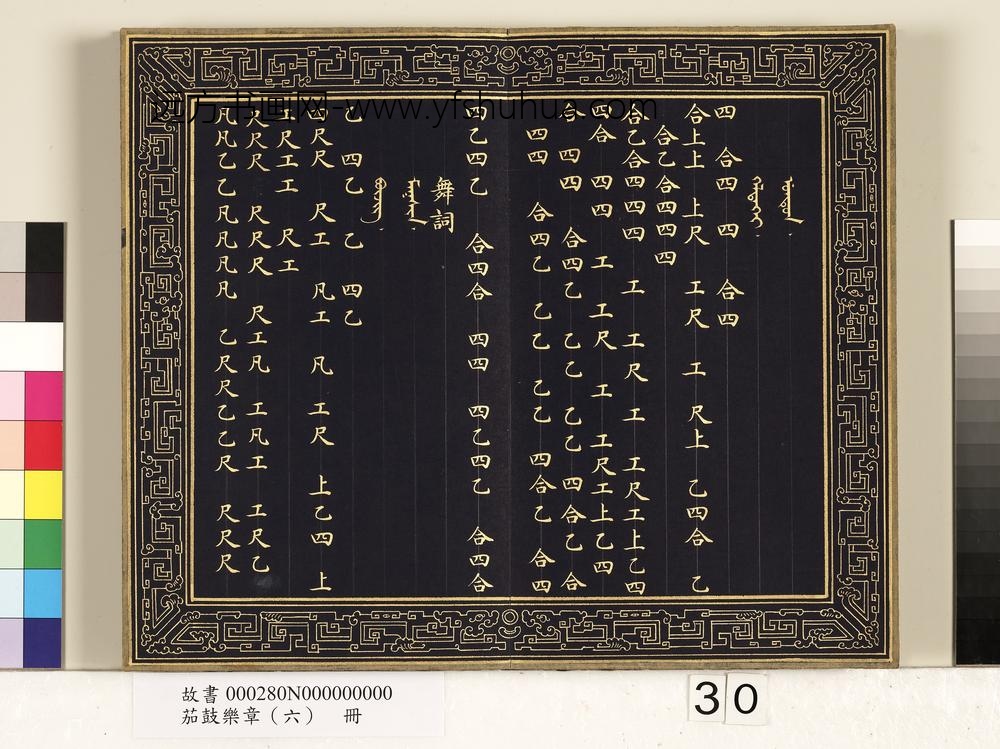 四 合四 四 合四
合上上 上尺 工尺 工 尺上 乙四合 乙
合乙合四四四
合乙合四四四 工 工尺 工 工尺工上乙四
四合 四四 工 工尺 工 工尺工上乙四
合 四四 合四乙 乙乙 乙乙 四合乙 合
四四 合四乙 乙乙 乙乙 四合乙 合四
四乙四乙 合四合 四四 四乙四乙 合四合
舞詞
乙 四乙 乙 四乙
尺尺 尺工 凡工 凡 工尺 上乙四 上
尺工工 尺工
尺尺尺 尺尺尺 尺工凡 工凡工 工尺乙
凡凡乙乙凡凡凡凡 乙尺尺乙乙尺 尺尺尺
四方书画网-www.yfshuhua.com
故書 000280N000000000
茄鼓樂章（六） 冊
30